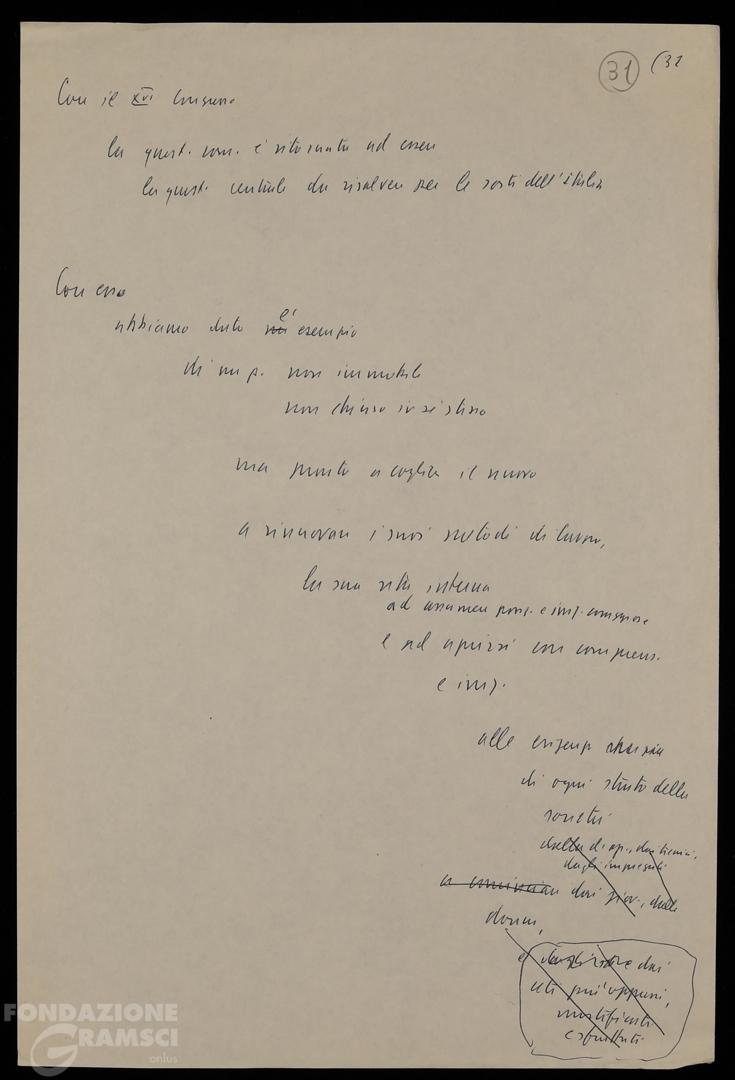 31 (31
Con il XVI Congresso
la quest. com. è ritornata ad essere
la quest. centrale da risolvere per le sorti dell'Italia
Con esso
abbiamo dato un l' esempio
di un p. non immobile
non chiuso in sé stesso
ma pronto a cogliere il nuovo
a rinnovare i suoi metodi di lavoro,
la sua vita interna
ad assumere e imp.
e ad aprirsi con comprens.
e imp.
alle esigenze
di ogni strato della
società
dalla cl. op., dai tecnici,
dagli impiegati
a cominciare dai giov., dalle
donne,
e dai
ceti più oppressi,
mortificati
e sfruttati
FONDAZIONE
GRAMSCI
onlus